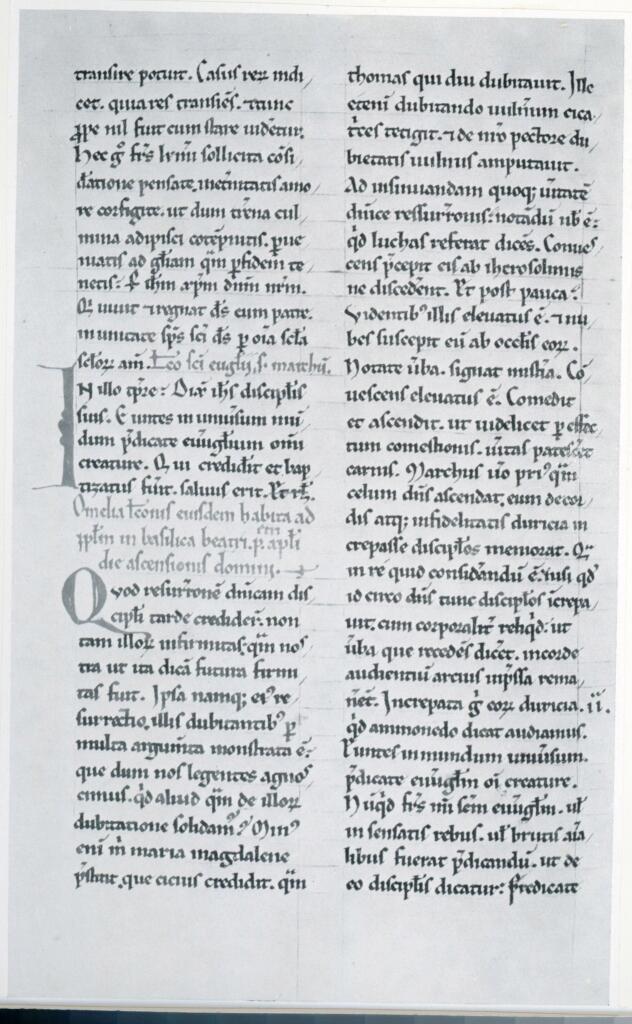 transire potuit. Casus reꝝ indi
cet. quia res transiēs. ⁊ tunc
ꝓpe nil fuit cum stare uidetur.
Hec gͦ frs̄ kr̄mi sollicita cōsi
d̄atione pensate. in et̄nitatis amo
re corfigite. ut dum t̄rena cul
mina adipisci cōtēpnitis. ꝑue
niatis ad gl̄iam qͣm ꝑ fidem te
netis. ꝑ ih̄m xp̄m dn̄m nr̄m.
Qui uiuit ⁊ regnat d̄s cum patre.
in unitate sp̄s sc̄i d̄s ꝑ oīa sc̄la
sc̄loꝝ am̄. Lc̄o sc̄i euḡlii, s. mattħm.
IN illo tp̄re: Dix̄ ih̄s discipl̄is
suis. Euntes in uniūsum mū
dum p̄dicate eūuglium om̄i
creature. Qui credidit et bap
tizatus fūit. saluus erit. Et rl̄.
Omelia lc̄onis eiusdem habita ad
ppl̄m in basilica beati petri apl̄i
die ascensionis domini.
Quod resurr̄onē dn̄icam dis
cipl̄i tarde credider̄. non
tam illoꝝ infirmitas. qͣm nos
tra ut ita dicā futura firmi
tas fuit. Ipsa namq; eiꝰ re
surrectio. illis dubitantibꝰ ꝑ
multa argum̄ta monstrata ē:
que dum nos legentes agnos
cimus. qd̄ aliud qͣm de illoꝝ
dubitatione solidamꝰ? Minꝰ
enī m̄ maria magdalene
p̄stitit. que cicius credidit. qͣm
thomas qui diu dubitauit. Ille
etenī dubitando uuln̄um cica
t̄ces tetigit. ⁊ de nr̄o pectore du
bietatis uulnus amputauit.
Ad insinuandam quoq; ūitatē
dn̄ice resurr̄onis: notādū nb̄ ē:
qd̄ luchas referat dicēs. Conues
cens p̄cepit eis ab iherosolimis
ne discederent. Et post pauca:
Videntibꝰ illis eleuatus ē. ⁊ nu
bes suscepit eū ab ocl̄is eoꝝ.
Notate ūba. signate mist̄ia. Cō
uescens eleuatus ē. Comedit
et ascendit. ut uidelicet ꝑ effec
tum comestionis. ūitas patesc̄et
carnis. Marchus ūo priꝰ qͣm
celum dn̄s ascendat. eum de cor
dis atq; infidelitatis duricia in
crepasse discipl̄os memorat. Qua
in re quid consid̄andū ē. nisi qd̄
id circo dn̄s tunc discipl̄os īcrepa
uit. cum corporalit̄ reliqd̄: ut
ūba que recedēs dic̄et. in corde
audientiū arcius inp̄ssa rema
nēt. Increpata gͦ eoꝝ duricia.
qd̄ ammonedo dicat audiamus.
Euntes in mundum uniūsum.
p̄dicate eūugl̄m oī creature.
Nūqd̄ frs̄ mi sc̄m eūugl̄m. ul̄
in sensatis rebus. ul̄ brutis aīa
libus fuerat p̄dicandū. ut de
eo discipl̄is dicatur: Predicate